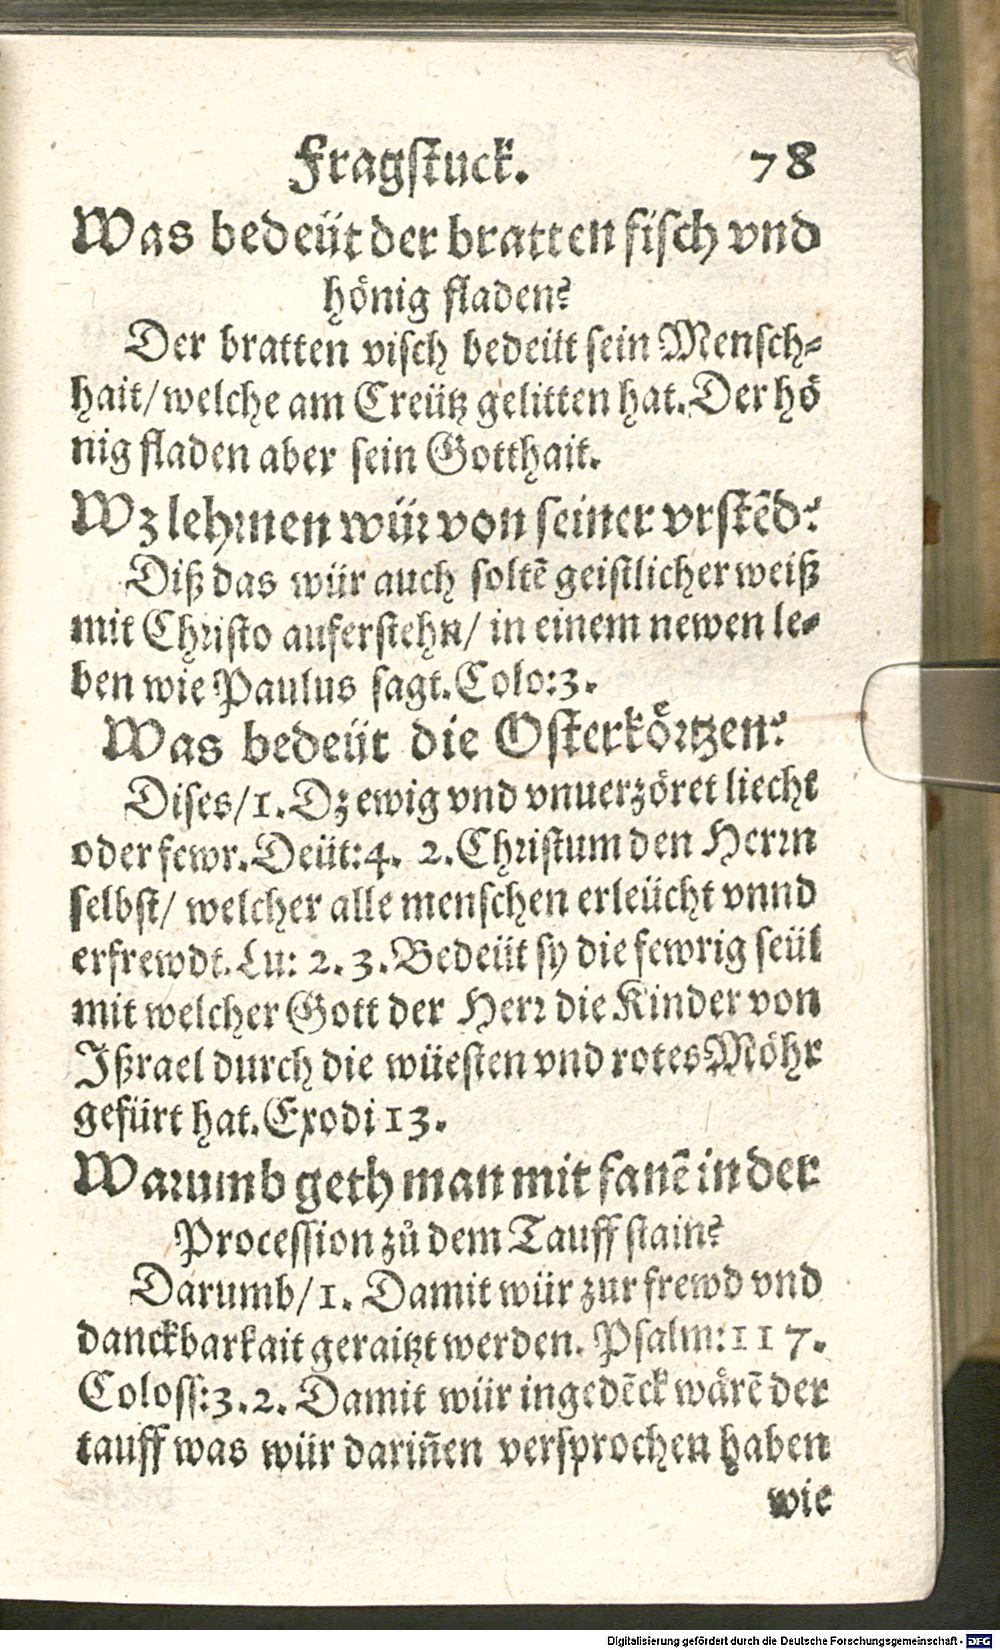 Fragſtuck. 78
Was bedeüt der bratten fiſch vnd
hönig fladen?
Der bratten viſch bedeüt ſein Menſch-
hait/ welche am Creütz gelitten hat. Der hö
nig fladen aber ſein Gotthait.
Wz lehrnen wür von ſeiner vrſtēd?
Diß das wür auch ſoltē geiſtlicher weiß
mit Chriſto auferſtehn/ in einem newen le-
ben wie Paulus ſagt. Colo:3.
Was bedeüt die Oſterkörtzen?
Diſes/1. Dz ewig vnd vnuerzöret liecht
oder fewr. Deüt:4. 2. Chriſtum den Herrn
ſelbſt/ welcher alle menſchen erleücht vnnd
erfrewdt. Lu: 2. 3. Bedeüt ſy die fewrig ſeül
mit welcher Gott der Herr die Kinder von
Ißrael durch die wüeſten vnd rotes Möhr
gefürt hat. Exodi 13.
Warumb geth man mit fanē in der
Proceſſion zů dem Tauff ſtain?
Darumb/1. Damit wür zur frewd vnd
danckbarkait geraitzt werden. Pſalm:117.
Coloſſ:3.2. Damit wür ingedēck wärē der
tauff was wür dariñen verſprochen haben
wie
Digitalisierung gefördert durch die Deutsche Forschungsgemeinschaft - DFG